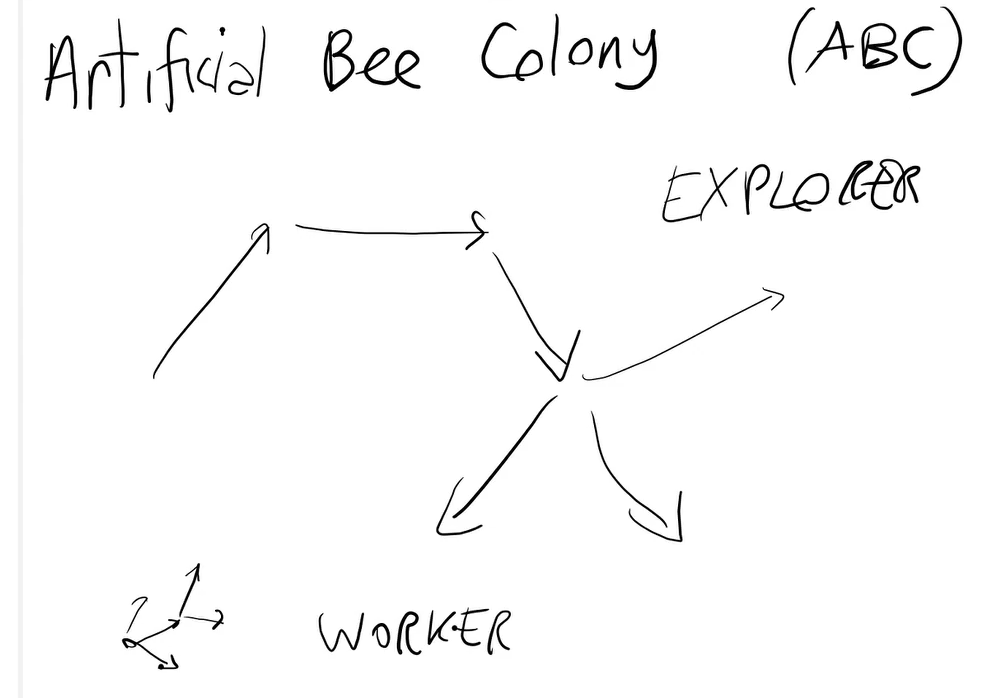 Artificial Bee Colony (ABC)
EXPLORER
WORKER